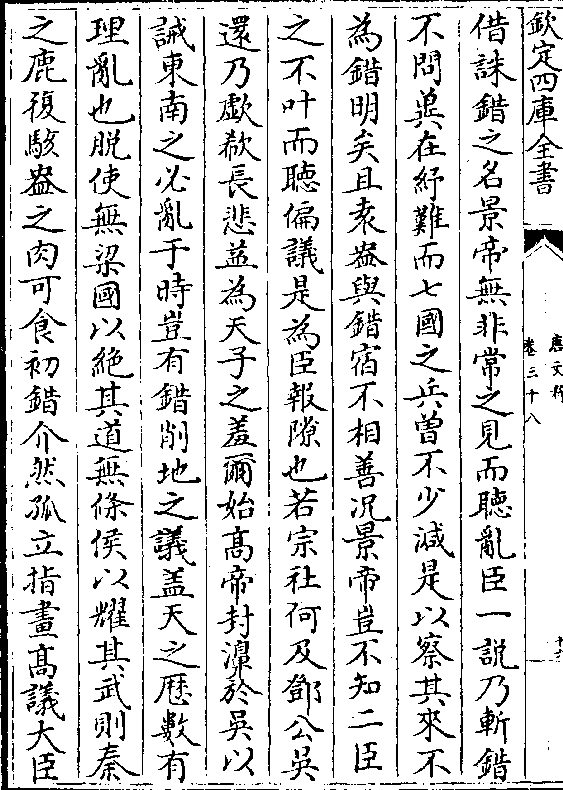 欽定四庫全書
唐文粹
卷三十八
借誅錯之名景帝無非常之見而聽亂臣一說乃斬錯
不問兾在紓難而七國之兵曽不少減是以察其來不
為錯明矣且袁盎與錯宿不相善况景帝豈不知二臣
之不叶而聽偏議是為臣報隙也若宗社何及鄧公吳
還乃歔欷長悲益為天子之羞爾始髙帝封濞於吳以
誡東南之必亂于時豈有錯削地之議盖天之歴數有
理亂也脱使無梁國以絶其道無條侯以耀其武則秦
之鹿復駭盎之肉可食初錯介然孤立指畫髙議大臣